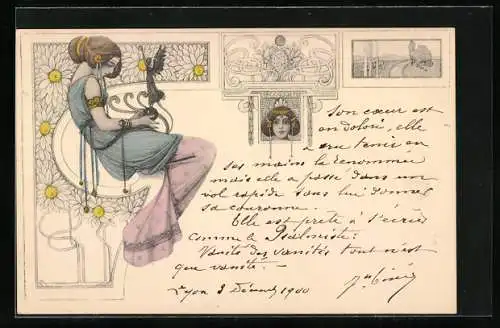 Son cœur est
endolori, elle
a cru tenir en
ses mains la renommée
mais elle a passé dans un
vol rapide sans lui donner
sa couronne.
Elle est prête à s'écrier
comme le Psalmiste:
Vanité des vanités tout n'est
que vanité!
Lyon 8 Décembre 1900